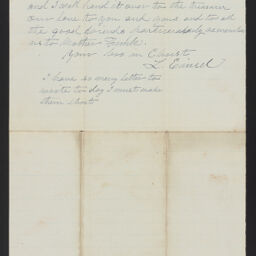 and I will hand it over to the treasurer
our love to you and yours and to all
the good friends particularly remember
us to Mother Funk.
Your bro in Christ
L. Eicuel
I have so many letter to
write to day I must make
them short